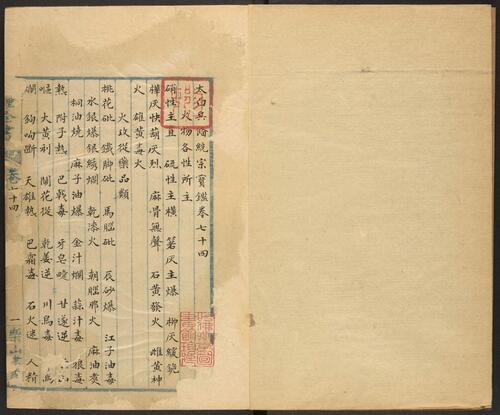 太白兵備統宗寶鑑卷七十四
火物各性所主
硝性主直 硫性主橫 箬灰主爆 柳灰緩銃
樺灰快 葫灰烈 麻骨無聲 石黃發火 雌黃神
火 雄黃毒火
火攻從藥品類
桃花砒 鐵脚砒 馬腦砒 辰砂爆 江子油毒
水銀爆 銀綉爛 乾漆火 朝腦邪火 麻油煑
桐油燒 麻子油爆 金汁爛 蒜汁毒 狼毒
熱 附子熱 巴戟毒 牙皂 甘遂逆
大黃利 鬧花從 乾姜逆 川烏毒
爛 鈎吻斷 天雄熱 巴霜毒 石火迷 人精
卷七十四
一